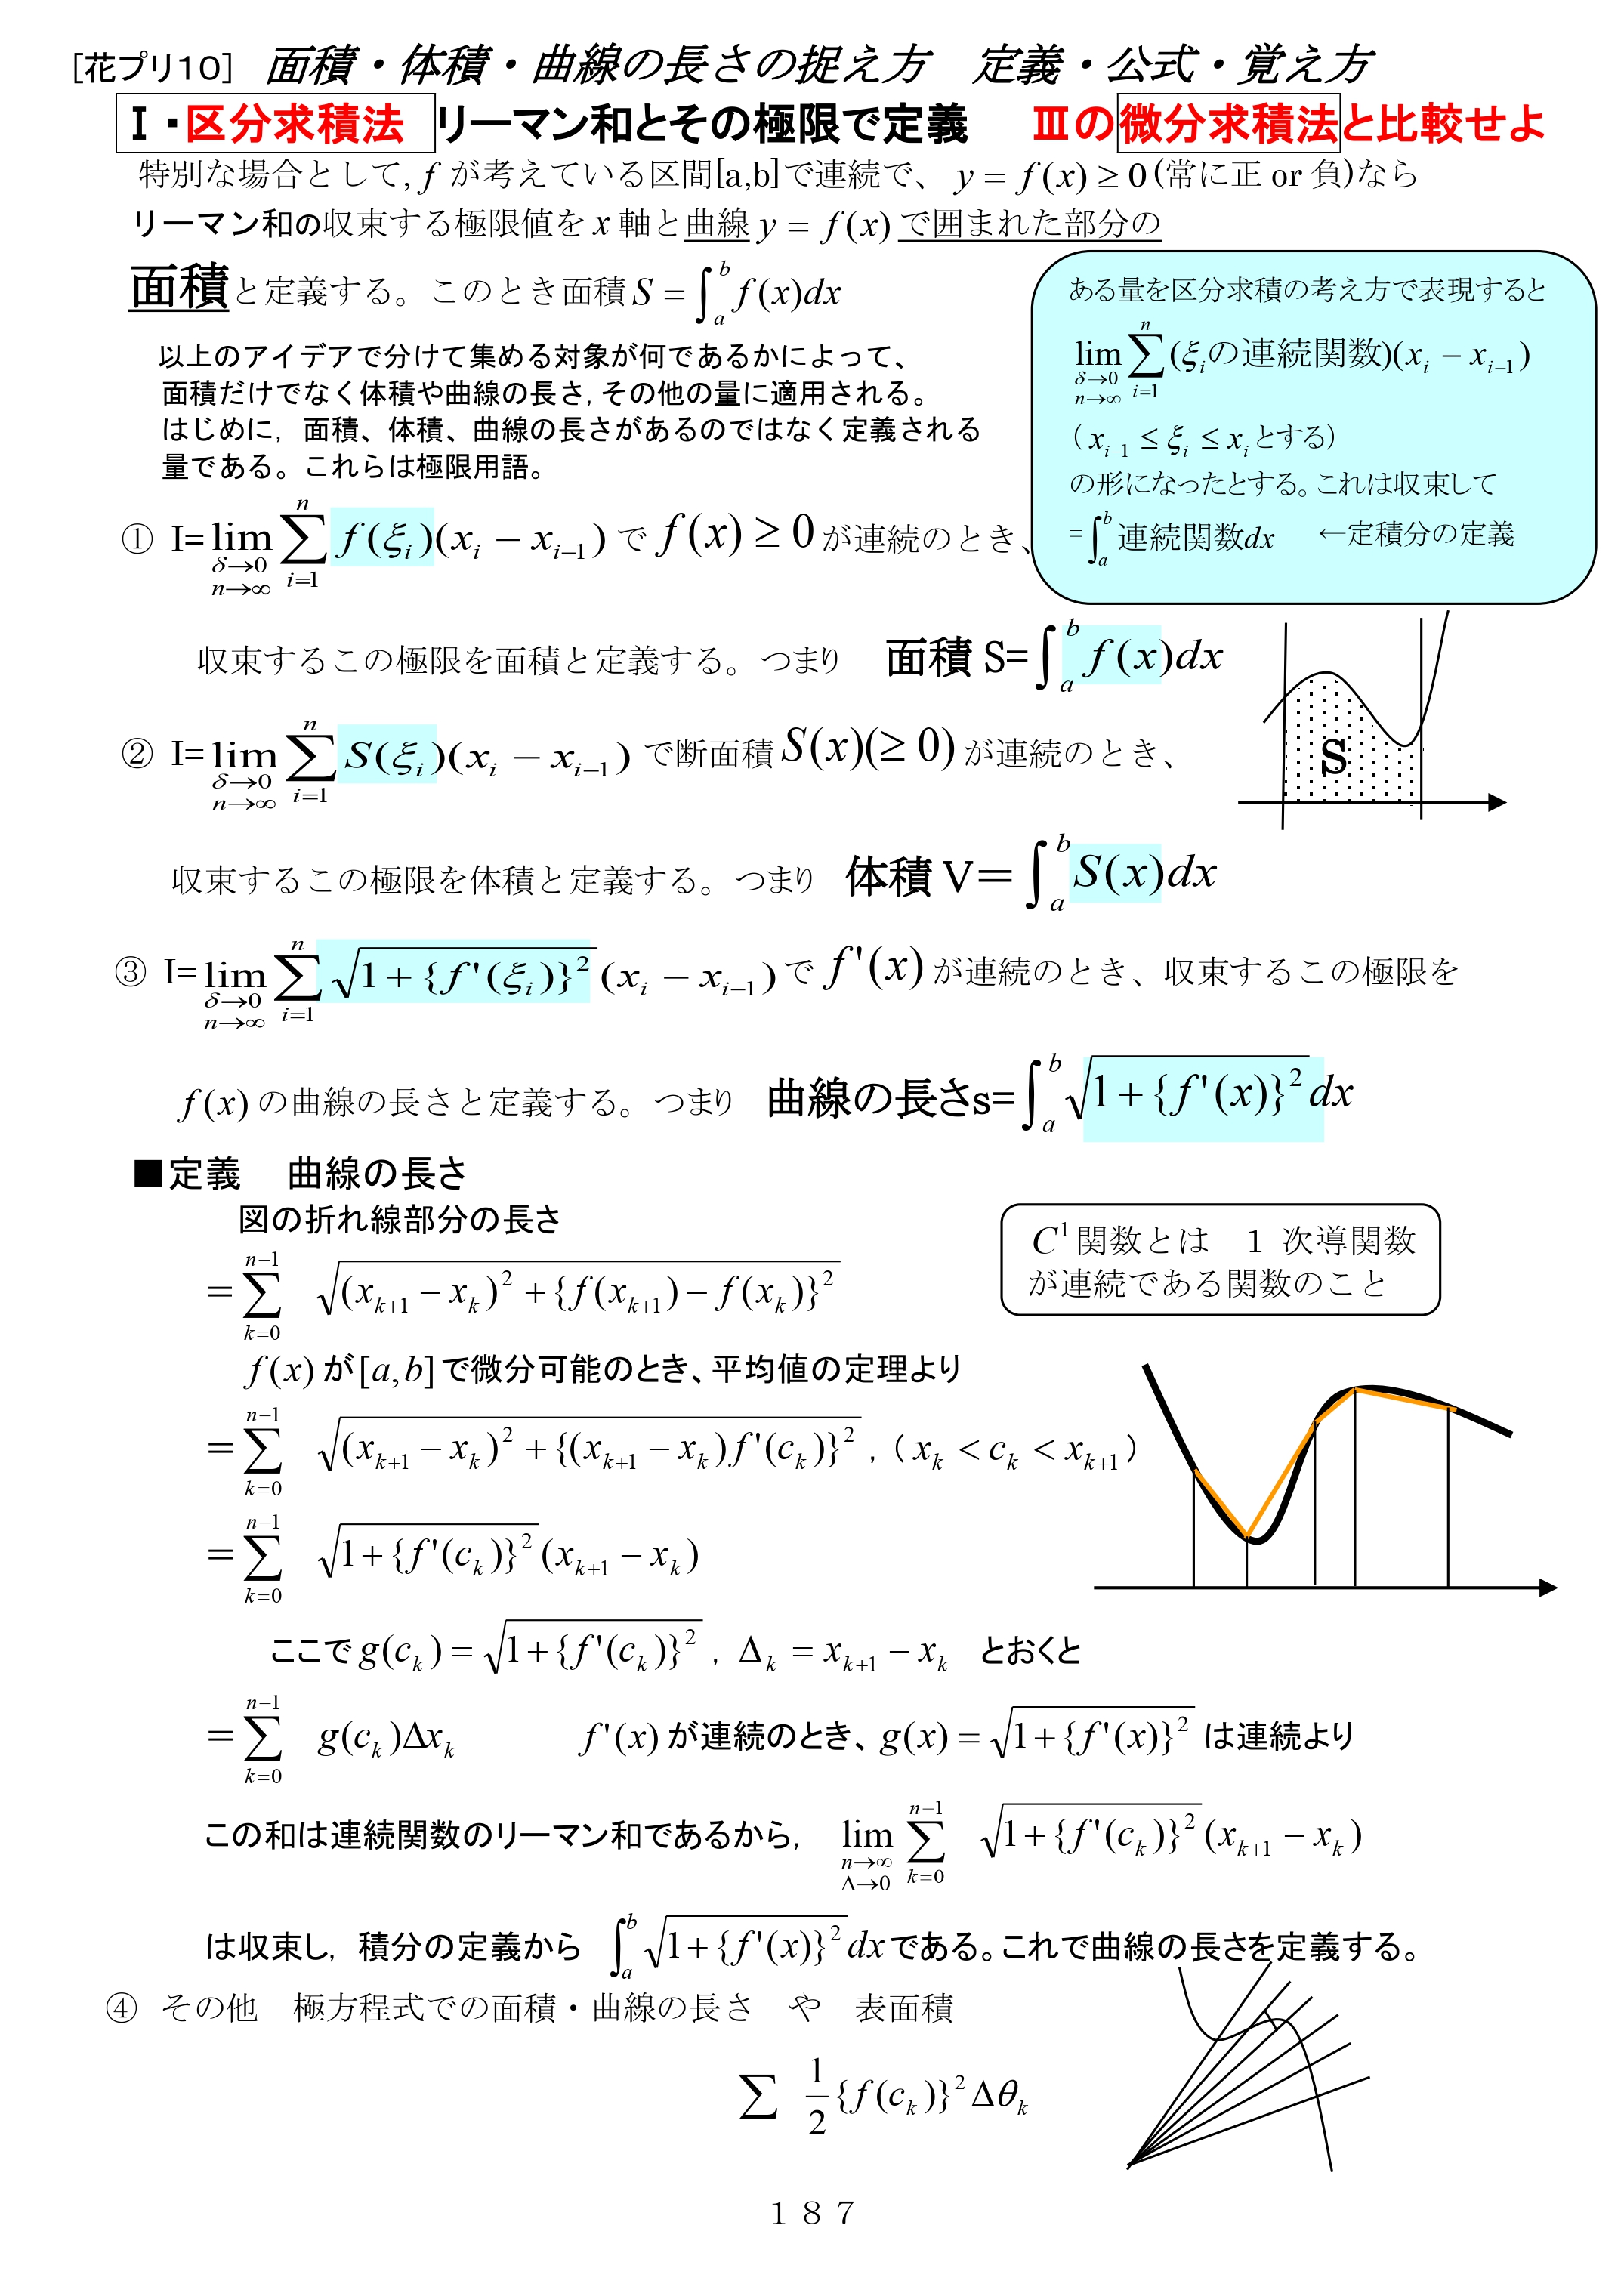 [花プリ10] 面積・体積・曲線の長さの捉え方 定義・公式・覚え方
Ⅰ・区分求積法 リーマン和とその極限で定義 Ⅲの微分求積法と比較せよ
特別な場合として, f が考えている区間[a,b]で連続で、 y = f(x) ≥ 0 (常に正 or 負)なら
リーマン和の収束する極限値を x 軸と曲線 y = f(x) で囲まれた部分の
面積と定義する。このとき面積 S = ∫_a^b f(x)dx
以上のアイデアで分けて集める対象が何であるかによって、
面積だけでなく体積や曲線の長さ, その他の量に適用される。
はじめに, 面積、体積、曲線の長さがあるのではなく定義される
量である。これらは極限用語。
ある量を区分求積の考え方で表現すると
lim_{δ→0 n→∞} Σ_{i=1}^{n} (ξ_i の連続関数)(x_i − x_{i−1})
( x_{i−1} ≤ ξ_i ≤ x_i とする)
の形になったとする。これは収束して
= ∫_a^b 連続関数dx ←定積分の定義
① I= lim_{δ→0 n→∞} Σ_{i=1}^{n} f(ξ_i)(x_i − x_{i−1}) で f(x) ≥ 0 が連続のとき、
収束するこの極限を面積と定義する。つまり 面積 S= ∫_a^b f(x)dx
S
② I= lim_{δ→0 n→∞} Σ_{i=1}^{n} S(ξ_i)(x_i − x_{i−1}) で断面積 S(x)(≥ 0) が連続のとき、
収束するこの極限を体積と定義する。つまり 体積 V＝ ∫_a^b S(x)dx
③ I= lim_{δ→0 n→∞} Σ_{i=1}^{n} √(1 + {f'(ξ_i)}^2) (x_i − x_{i−1}) で f'(x) が連続のとき、収束するこの極限を
f(x) の曲線の長さと定義する。つまり 曲線の長さs= ∫_a^b √(1 + {f'(x)}^2) dx
■定義 曲線の長さ
図の折れ線部分の長さ
= Σ_{k=0}^{n−1} √((x_{k+1} − x_k)^2 + {f(x_{k+1}) − f(x_k)}^2)
C^1 関数とは 1 次導関数
が連続である関数のこと
f(x) が [a,b] で微分可能のとき、平均値の定理より
= Σ_{k=0}^{n−1} √((x_{k+1} − x_k)^2 + {(x_{k+1} − x_k) f'(c_k)}^2) , ( x_k < c_k < x_{k+1} )
= Σ_{k=0}^{n−1} √(1 + {f'(c_k)}^2) (x_{k+1} − x_k)
ここで g(c_k) = √(1 + {f'(c_k)}^2) , Δ_k = x_{k+1} − x_k とおくと
= Σ_{k=0}^{n−1} g(c_k)Δx_k f'(x) が連続のとき、g(x) = √(1 + {f'(x)}^2) は連続より
この和は連続関数のリーマン和であるから, lim_{n→∞ Δ→0} Σ_{k=0}^{n−1} √(1 + {f'(c_k)}^2) (x_{k+1} − x_k)
は収束し, 積分の定義から ∫_a^b √(1 + {f'(x)}^2) dx である。これで曲線の長さを定義する。
④ その他 極方程式での面積・曲線の長さ や 表面積
Σ 1/2 {f(c_k)}^2 Δθ_k
１８７